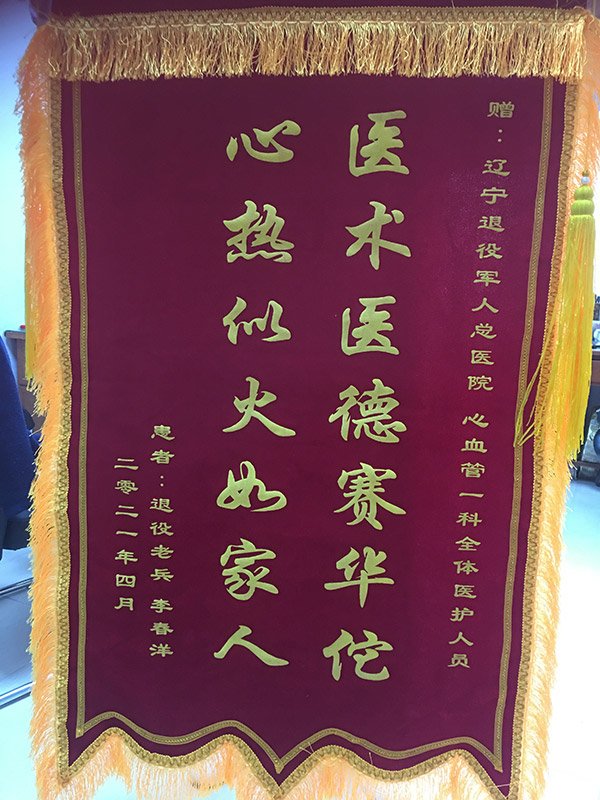 赠：辽宁退役军人总医院 心血管一科全体医护人员
医术医德赛华佗
心热似火如家人
患者：退役老兵 李春洋
二零二一年四月